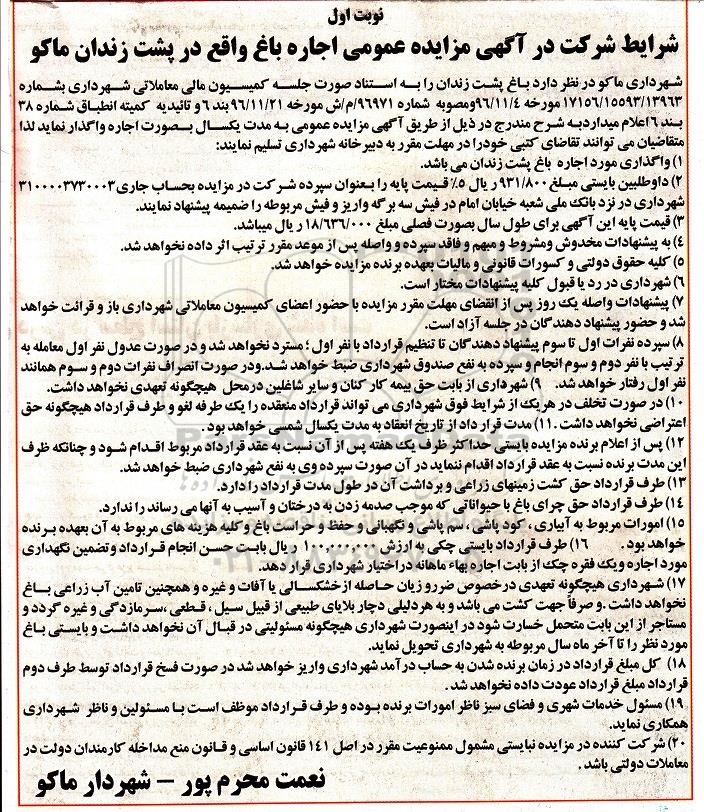 نوبت اول
شرایط شرکت در آگهی مزایده عمومی اجاره باغ واقع در پشت زندان ماکو
شهرداری ماکو در نظر دارد باغ پشت زندان را به استناد صورت جلسه کمیسیون مالی معاملاتی شهرداری بشماره
۱۷۱۵۶/۱۵۵۹۳/۱۳۹۶۳ مورخه ۹۶/۱۱/۴ ومصوبه شماره ۹۶۹۷۱/م/ش مورخه ۹۶/۱۱/۲۱ بند ۶ و تائیدیه کمیته انطباق شماره ۳۸
بند ۶ اعلام میدارد به شرح مندرج در ذیل از طریق آگهی مزایده عمومی به مدت یکسال بصورت اجاره واگذار نماید لذا
متقاضیان می توانند تقاضای کتبی خودرا در مهلت مقرر به دبیرخانه شهرداری تسلیم نمایند:
۱) واگذاری مورد اجاره باغ پشت زندان می باشد.
۲) داوطلبین بایستی مبلغ ۹۳۱/۸۰۰ ریال ۵٪ قیمت پایه را بعنوان سپرده شرکت در مزایده بحساب جاری ۳۱۰۰۰۰۳۷۳۰۰۰۳
شهرداری در نزد بانک ملی شعبه خیابان امام در فیش سه برگه واریز و فیش مربوطه را ضمیمه پیشنهاد نمایند.
۳) قیمت پایه این آگهی برای طول سال بصورت فصلی مبلغ ۱۸/۶۳۶/۰۰۰ ریال میباشد.
۴) به پیشنهادات مخدوش ومشروط و مبهم و فاقد سپرده و واصله پس از موعد مقرر ترتیب اثر داده نخواهد شد.
۵) کلیه حقوق دولتی و کسورات قانونی و مالیات بعهده برنده مزایده خواهد شد.
۶) شهرداری در رد یا قبول کلیه پیشنهادات مختار است.
۷) پیشنهادات واصله یک روز پس از انقضای مهلت مقرر مزایده با حضور اعضای کمیسیون معاملاتی شهرداری باز و قرائت خواهد
شد و حضور پیشنهاد دهندگان در جلسه آزاد است.
۸) سپرده نفرات اول تا سوم پیشنهاد دهندگان تا تنظیم قرارداد با نفر اول ؛ مسترد نخواهد شد و در صورت عدول نفر اول معامله به
ترتیب با نفر دوم و سوم انجام و سپرده به نفع صندوق شهرداری ضبط خواهد شد.ودر صورت انصراف نفرات دوم و سوم همانند
نفر اول رفتار خواهد شد. ۹) شهرداری از بابت حق بیمه کار کنان و سایر شاغلین درمحل هیچگونه تعهدی نخواهد داشت.
۱۰) در صورت تخلف در هر یک از شرایط فوق شهرداری می تواند قرارداد منعقده را یک طرفه لغو و طرف قرارداد هیچگونه حق
اعتراضی نخواهد داشت .۱۱) مدت قرار داد از تاریخ انعقاد به مدت یکسال شمسی خواهد بود .
۱۲) پس از اعلام برنده مزایده بایستی حداکثر ظرف یک هفته پس از آن نسبت به عقد قرارداد مربوط اقدام شود و چنانکه ظرف
این مدت برنده نسبت به عقد قرارداد اقدام ننماید در آن صورت سپرده وی به نفع شهرداری ضبط خواهد شد.
۱۳) طرف قرارداد حق کشت زمینهای زراعی و برداشت آن در طول مدت قرارداد را دارد.
۱۴) طرف قرارداد حق چرای باغ با حیواناتی که موجب صدمه زدن به درختان و آسیب به آنها می رساند را ندارد.
۱۵) امورات مربوط به آبیاری ، کود پاشی ، سم پاشی و نگهبانی و حفظ و حراست باغ و کلیه هزینه های مربوط به آن بعهده برنده
خواهد بود . ۱۶) طرف قرارداد بایستی چکی به ارزش ۱۰۰۰۰۰۰۰۰ ریال بابت حسن انجام قرارداد وتضمین نگهداری
مورد اجاره ویک فقره چک از بابت اجاره بهاء ماهانه دراختیار شهرداری قرار دهد.
۱۷) شهرداری هیچگونه تعهدی درخصوص ضررو زیان حاصله از خشکسالی یا آفات و غیره و همچنین تامین آب زراعی باغ
نخواهد داشت .و صرفاً جهت کشت می باشد و به هر دلیلی دچار بلایای طبیعی از قبیل سیل ، قطعی ،سرمازدگی و غیره گردد و
مستاجر از این بابت متحمل خسارت شود در اینصورت شهرداری هیچگونه مسئولیتی در قبال آن نخواهد داشت و بایستی باغ
مورد نظر را تا آخر ماه سال مربوطه به شهرداری تحویل نماید.
۱۸) کل مبلغ قرارداد در زمان برنده شدن به حساب درآمد شهرداری واریز خواهد شد در صورت فسخ قرارداد توسط طرف دوم
قرارداد مبلغ قرارداد عودت داده نخواهد شد .
۱۹) مسئول خدمات شهری و فضای سبز ناظر امورات برنده بوده و طرف قرارداد موظف است با مسئولین و ناظر شهرداری
همکاری نماید.
۲۰) شرکت کننده در مزایده نبایستی مشمول ممنوعیت مقرر در اصل ۱۴۱ قانون اساسی و قانون منع مداخله کارمندان دولت در
معاملات دولتی باشد .
نعمت محرم پور – شهردار ماکو